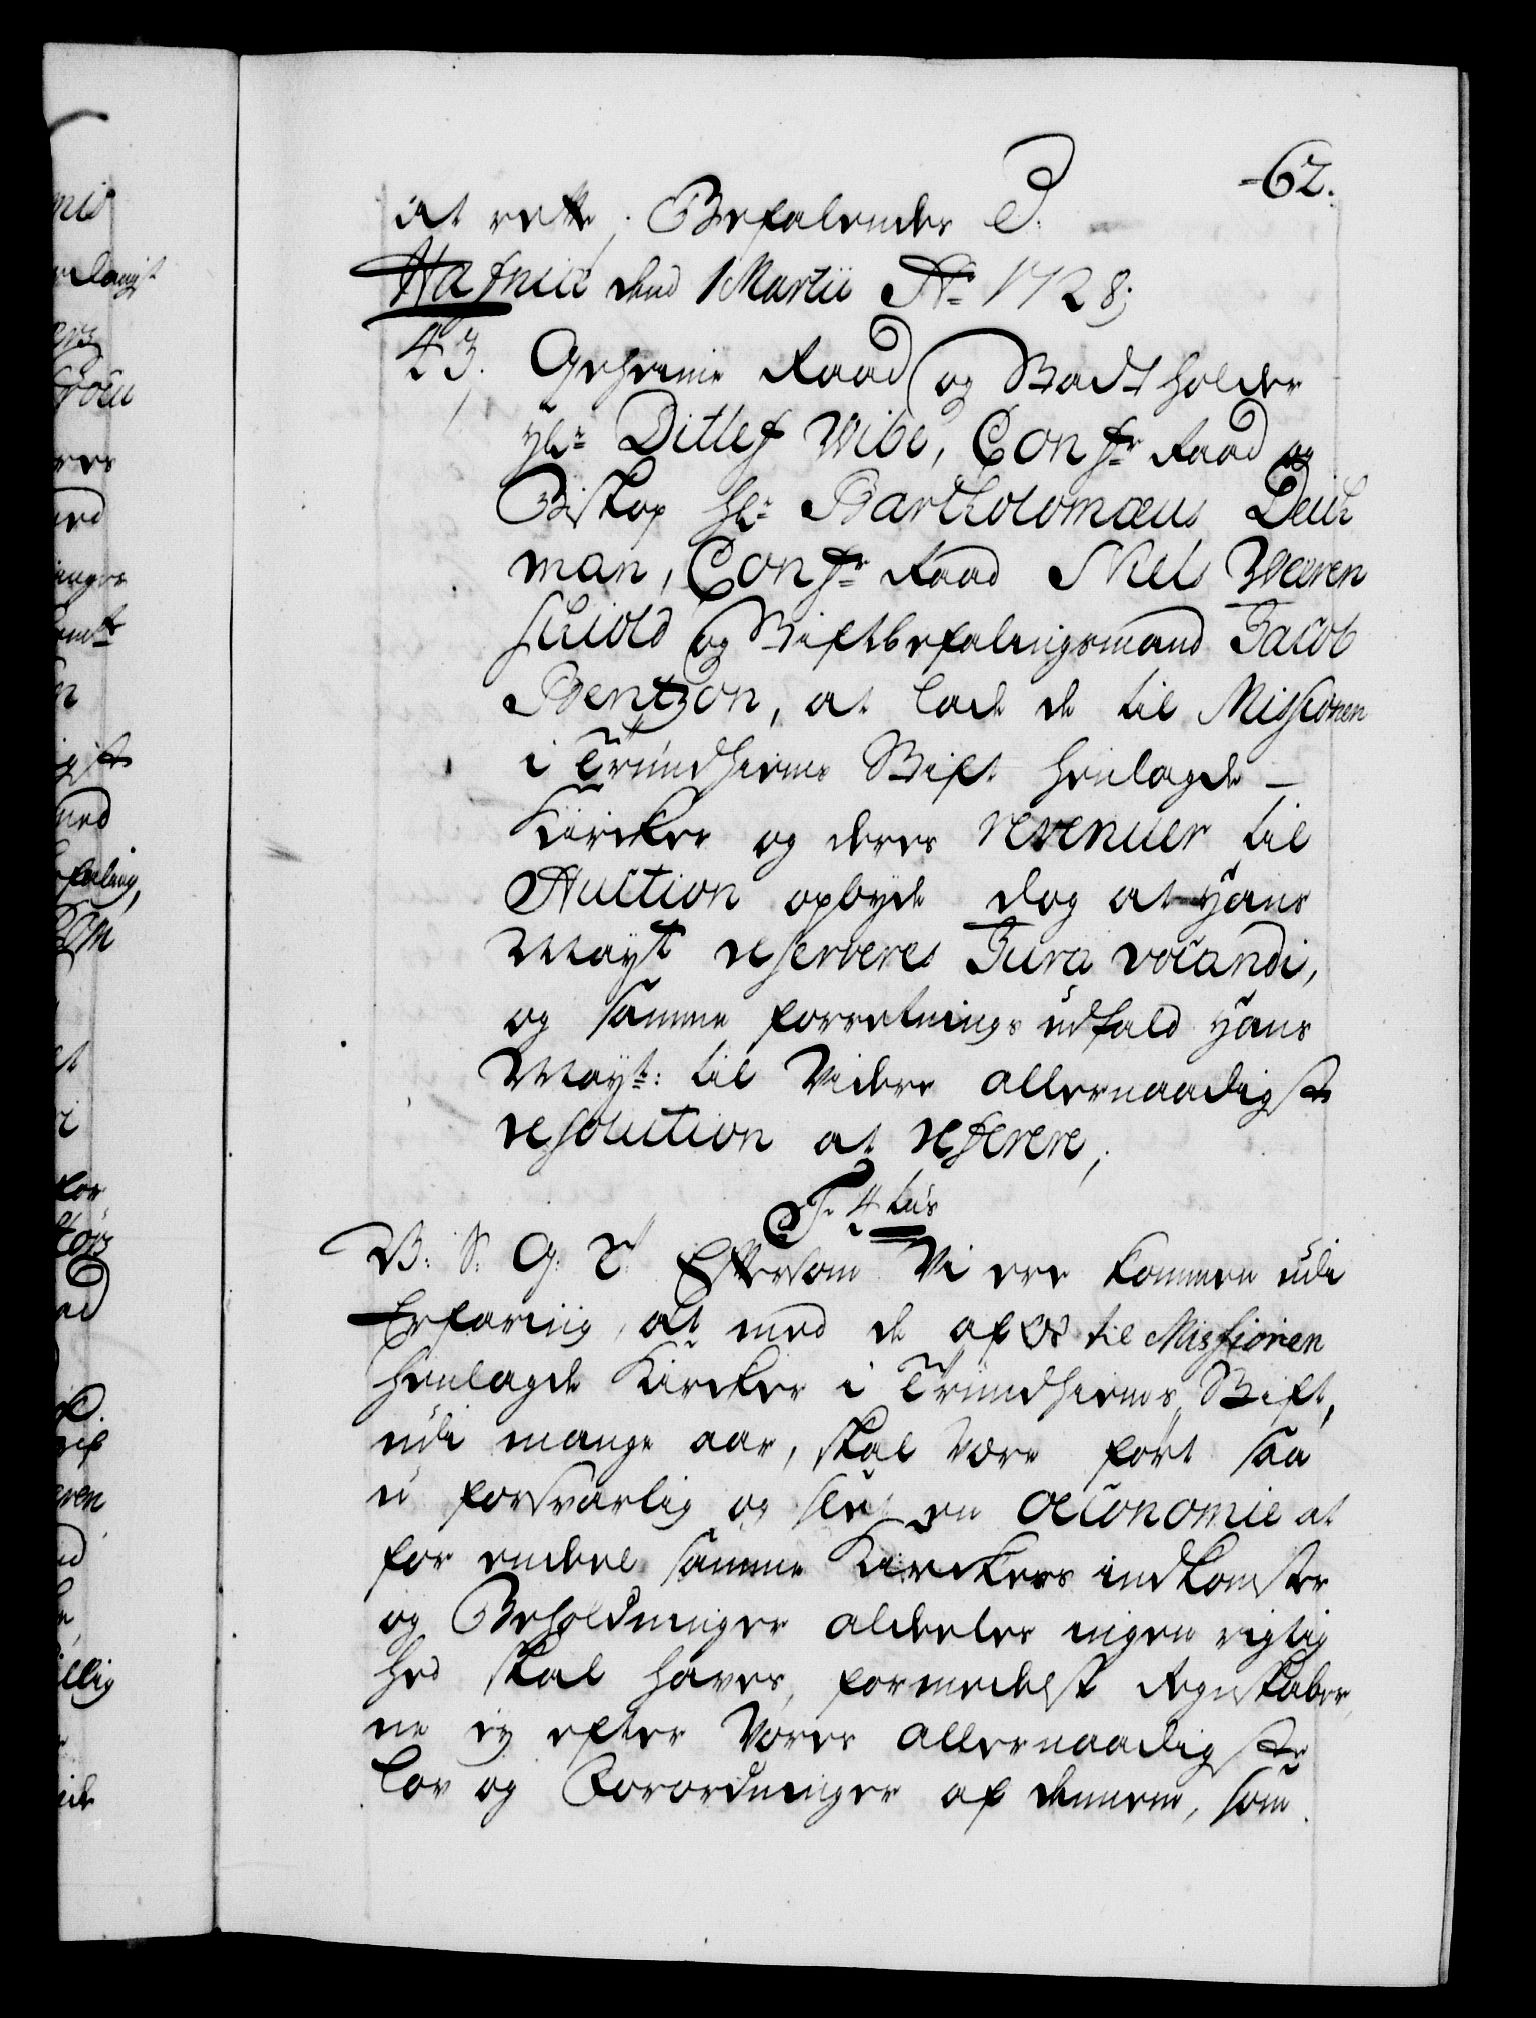 62.
at rette; Befalendes P.
Hafniæ dend 1 Martii Ao 1728;
43. Geheime Raad og Stadtholder
Hr: Ditlef Wibe, Confr Raad og
Biskop Hr: Bartholomæus Deich
man, Confr Raad Niels Weeren
schiold og Stiftbefalingsmand Jacob
Bentzon, at lade de til Missionen
i Trundhiems Stift henlagde
Kircker og deres revenuer til
Auction opbyde dog at Hans
Mayt reserveres Jura vocandi,
og samme forretnings udfald Hans
Mayt: til Videre allernaadigste
resolution at referere,
F. 4 tus
V: S: G: T: Eftersom Vi ere kommen udi
Erfaring, at med de af Os til Missionen
henlagde Kircker i Trundhiems Stift,
udi mange aar, skal være ført saa
u forsvarlig og slet en oeconomie at
for endeel samme Kirckers indkomster
og Beholdninger aldeeles ingen rigtig
hed skal haves, formedelst Regnskaber
ne ey efter Vores allernaadigste
Lov og Forordninger af dennem, som